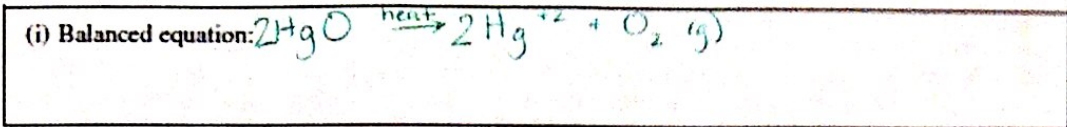 (i) Balanced equation: 2HgO heat→ 2Hg⁺² + O₂ (g)